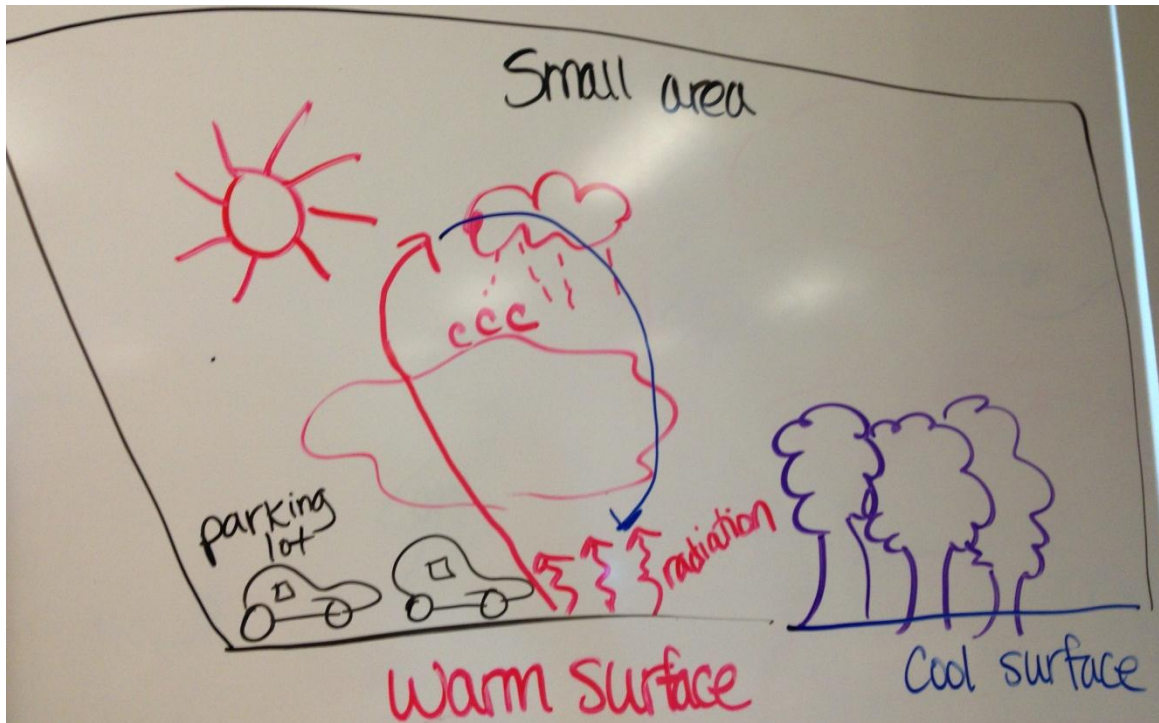 Small area
ccc
parking
lot
radiation
Warm surface
Cool surface